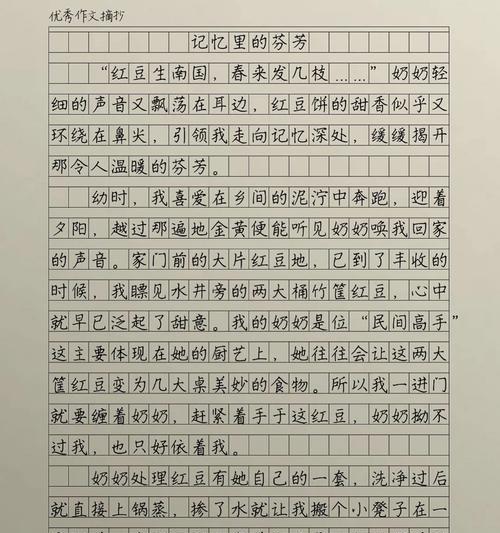 优秀作文摘抄
记忆里的芬芳
“红豆生南国，春来发几枝……”奶奶轻
细的声音又飘荡在耳边，红豆饼的甜香似乎又
环绕在鼻尖，引领我走向记忆深处，缓缓揭开
那令人温暖的芬芳。
幼时，我喜爱在乡间的泥泞中奔跑，迎着
夕阳，越过那遍地金黄便能听见奶奶唤我回家
的声音。家门前的大片红豆地，已到了丰收的
时候，我瞟见水井旁的两大桶竹筐红豆，心中
就早已泛起了甜意。我的奶奶是位“民间高手”
这主要体现在她的厨艺上，她往往会让这两大
筐红豆变为几大桌美妙的食物。所以我一进门
就要缠着奶奶，赶紧着手于这红豆，奶奶拗不
过我，也只好依着我。
奶奶处理红豆有她自己的一套，洗净过后
就直接上锅蒸，掺了水就让我搬个小凳子在一